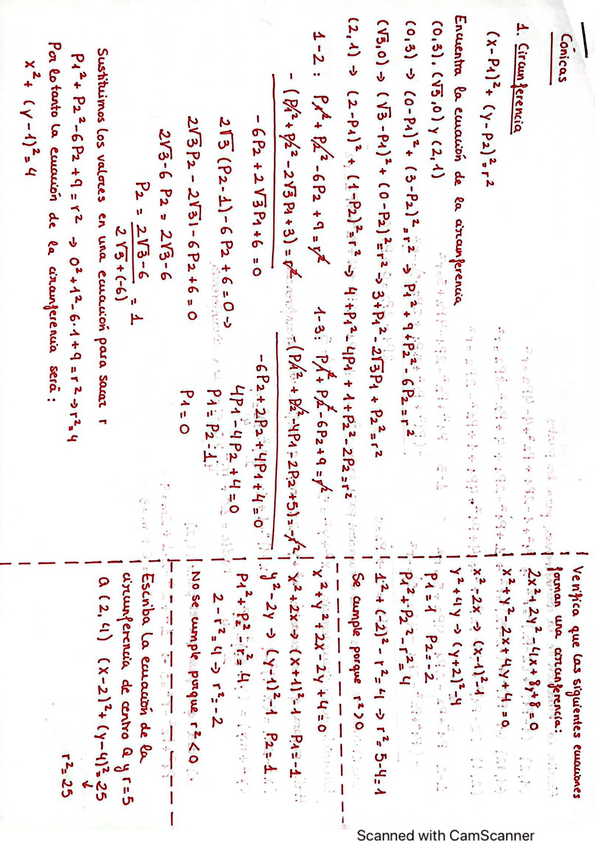 Cónicas
1. Circunferencia
(x-P1)²+(y-P2)²=r²
Encuentra la ecuación de la circunferencia
(0,3), (√3,0) y (2,1)
(0,3) → (0-P1)²+(3-P2)²=r² → P1²+9+P2²-6P2=r²
(√3,0) → (√3-P1)²+(0-P2)²=r² → 3+P1²-2√3P1+P2²=r²
(2,1) → (2-P1)²+(1-P2)²=r² → 4+P1²-4P1+1+P2²-2P2=r²
1-2: P1²+P2²-6P2+9=r²
-(P1²+P2²-2√3P1+3)=r²
-6P2+2√3P1+6=0
2√3(P2-1)-6P2+6=0 →
2√3P2-2√3-6P2+6=0
2√3-6 P2=2√3-6
P2 = 2√3-6 / 2√3+(-6) = 1
1-3: P1²+P2²-6P2+9=r²
-(P1²+P2²-4P1-2P2+5)=-r²
-6P2+2P2+4P1+4=0
4P1-4P2+4=0
P1=P2-1
P1=0
Sustituimos los valores en una ecuación para sacar r
P1²+P2²-6P2+9=r² → 0²+1²-6·1+9=r² → r²=4
Por lo tanto la ecuación de la circunferencia será:
x²+(y-1)²=4
Verifica que las siguientes ecuaciones
forman una circunferencia:
2x²+2y²-4x+8y+8=0
x²+y²-2x+4y+4=0
x²-2x → (x-1)²-1
y²+4y → (y+2)²-4
P1=1 P2=-2
P1²+P2²-r²=4
1²+(-2)²-r²=4 → r²=5-4=1
Se cumple porque r²>0
x²+y²+2x-2y+4=0
x²+2x → (x+1)²-1 P1=-1
y²-2y → (y-1)²-1 P2=1
P1²+P2²-r²=4
2-r²=4 → r²=-2
No se cumple porque r²<0
Escriba la ecuación de la
circunferencia de centro Q y r=5
Q(2,4) (x-2)²+(y-4)²=25
↓
r²=25
Scanned with CamScanner